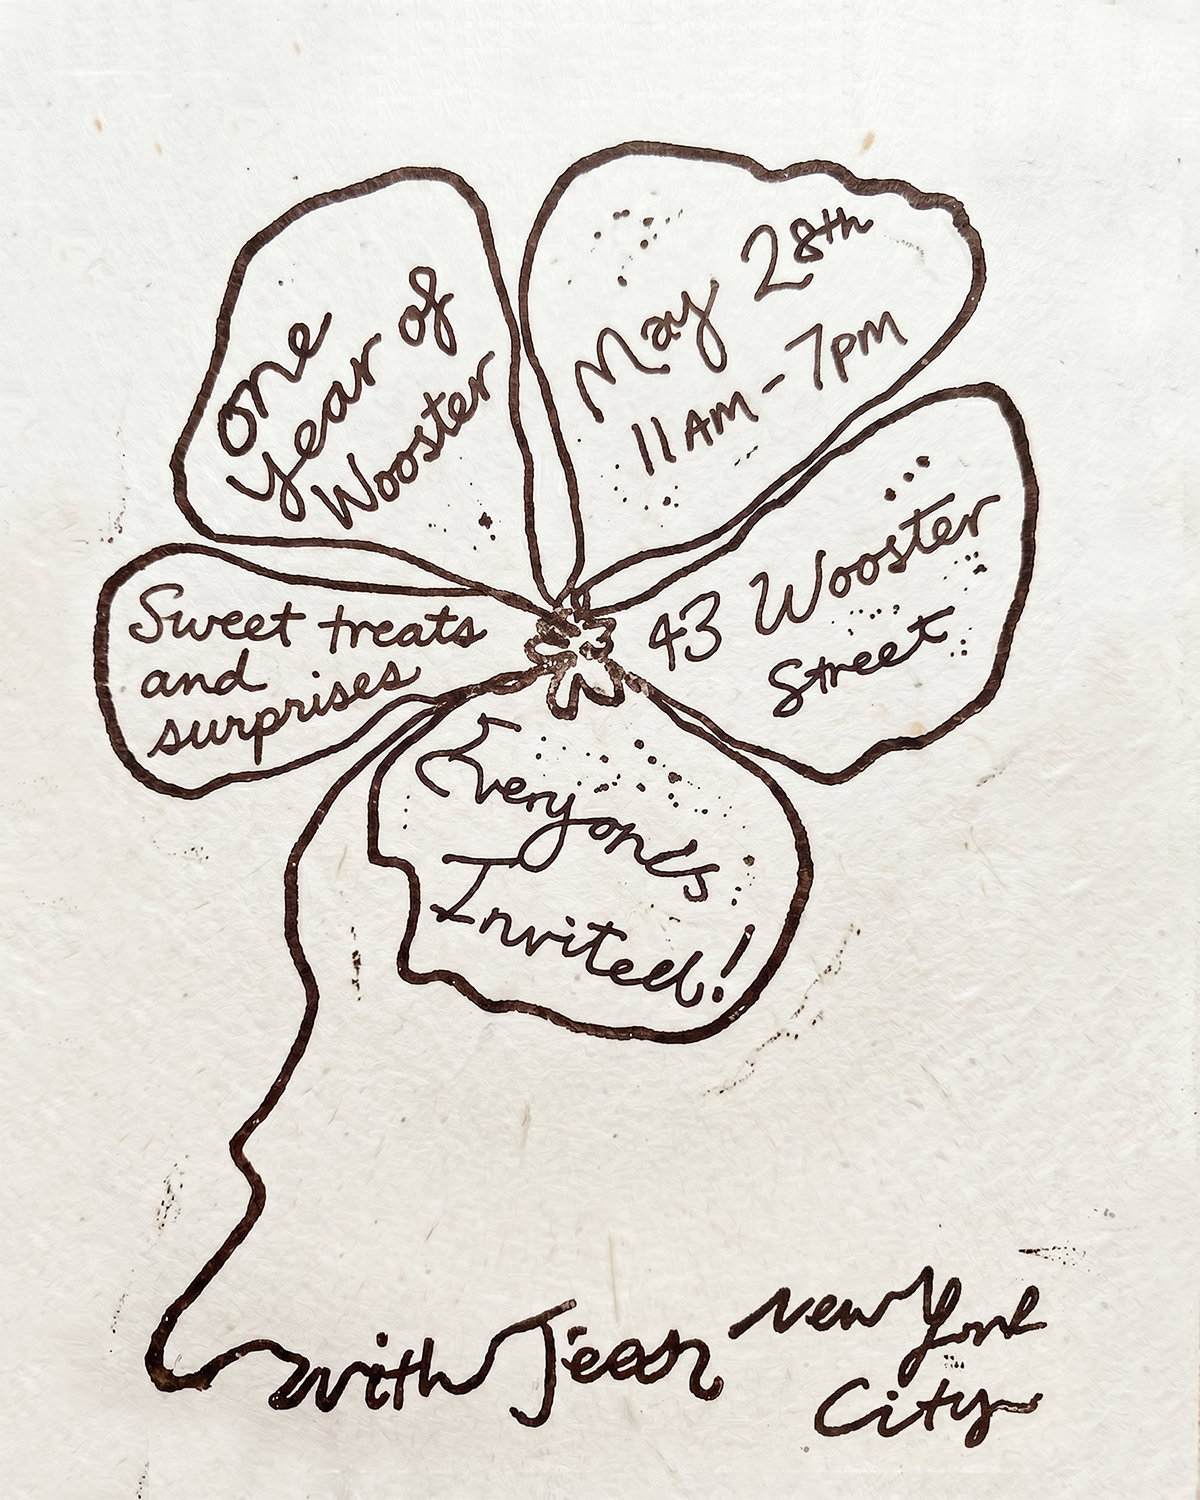 one
year of
Wooster
May 28th
11AM-7pm
43 Wooster
Street
Sweet treats
and
surprises
Everyone's
Invited!
with Jean
New York
City